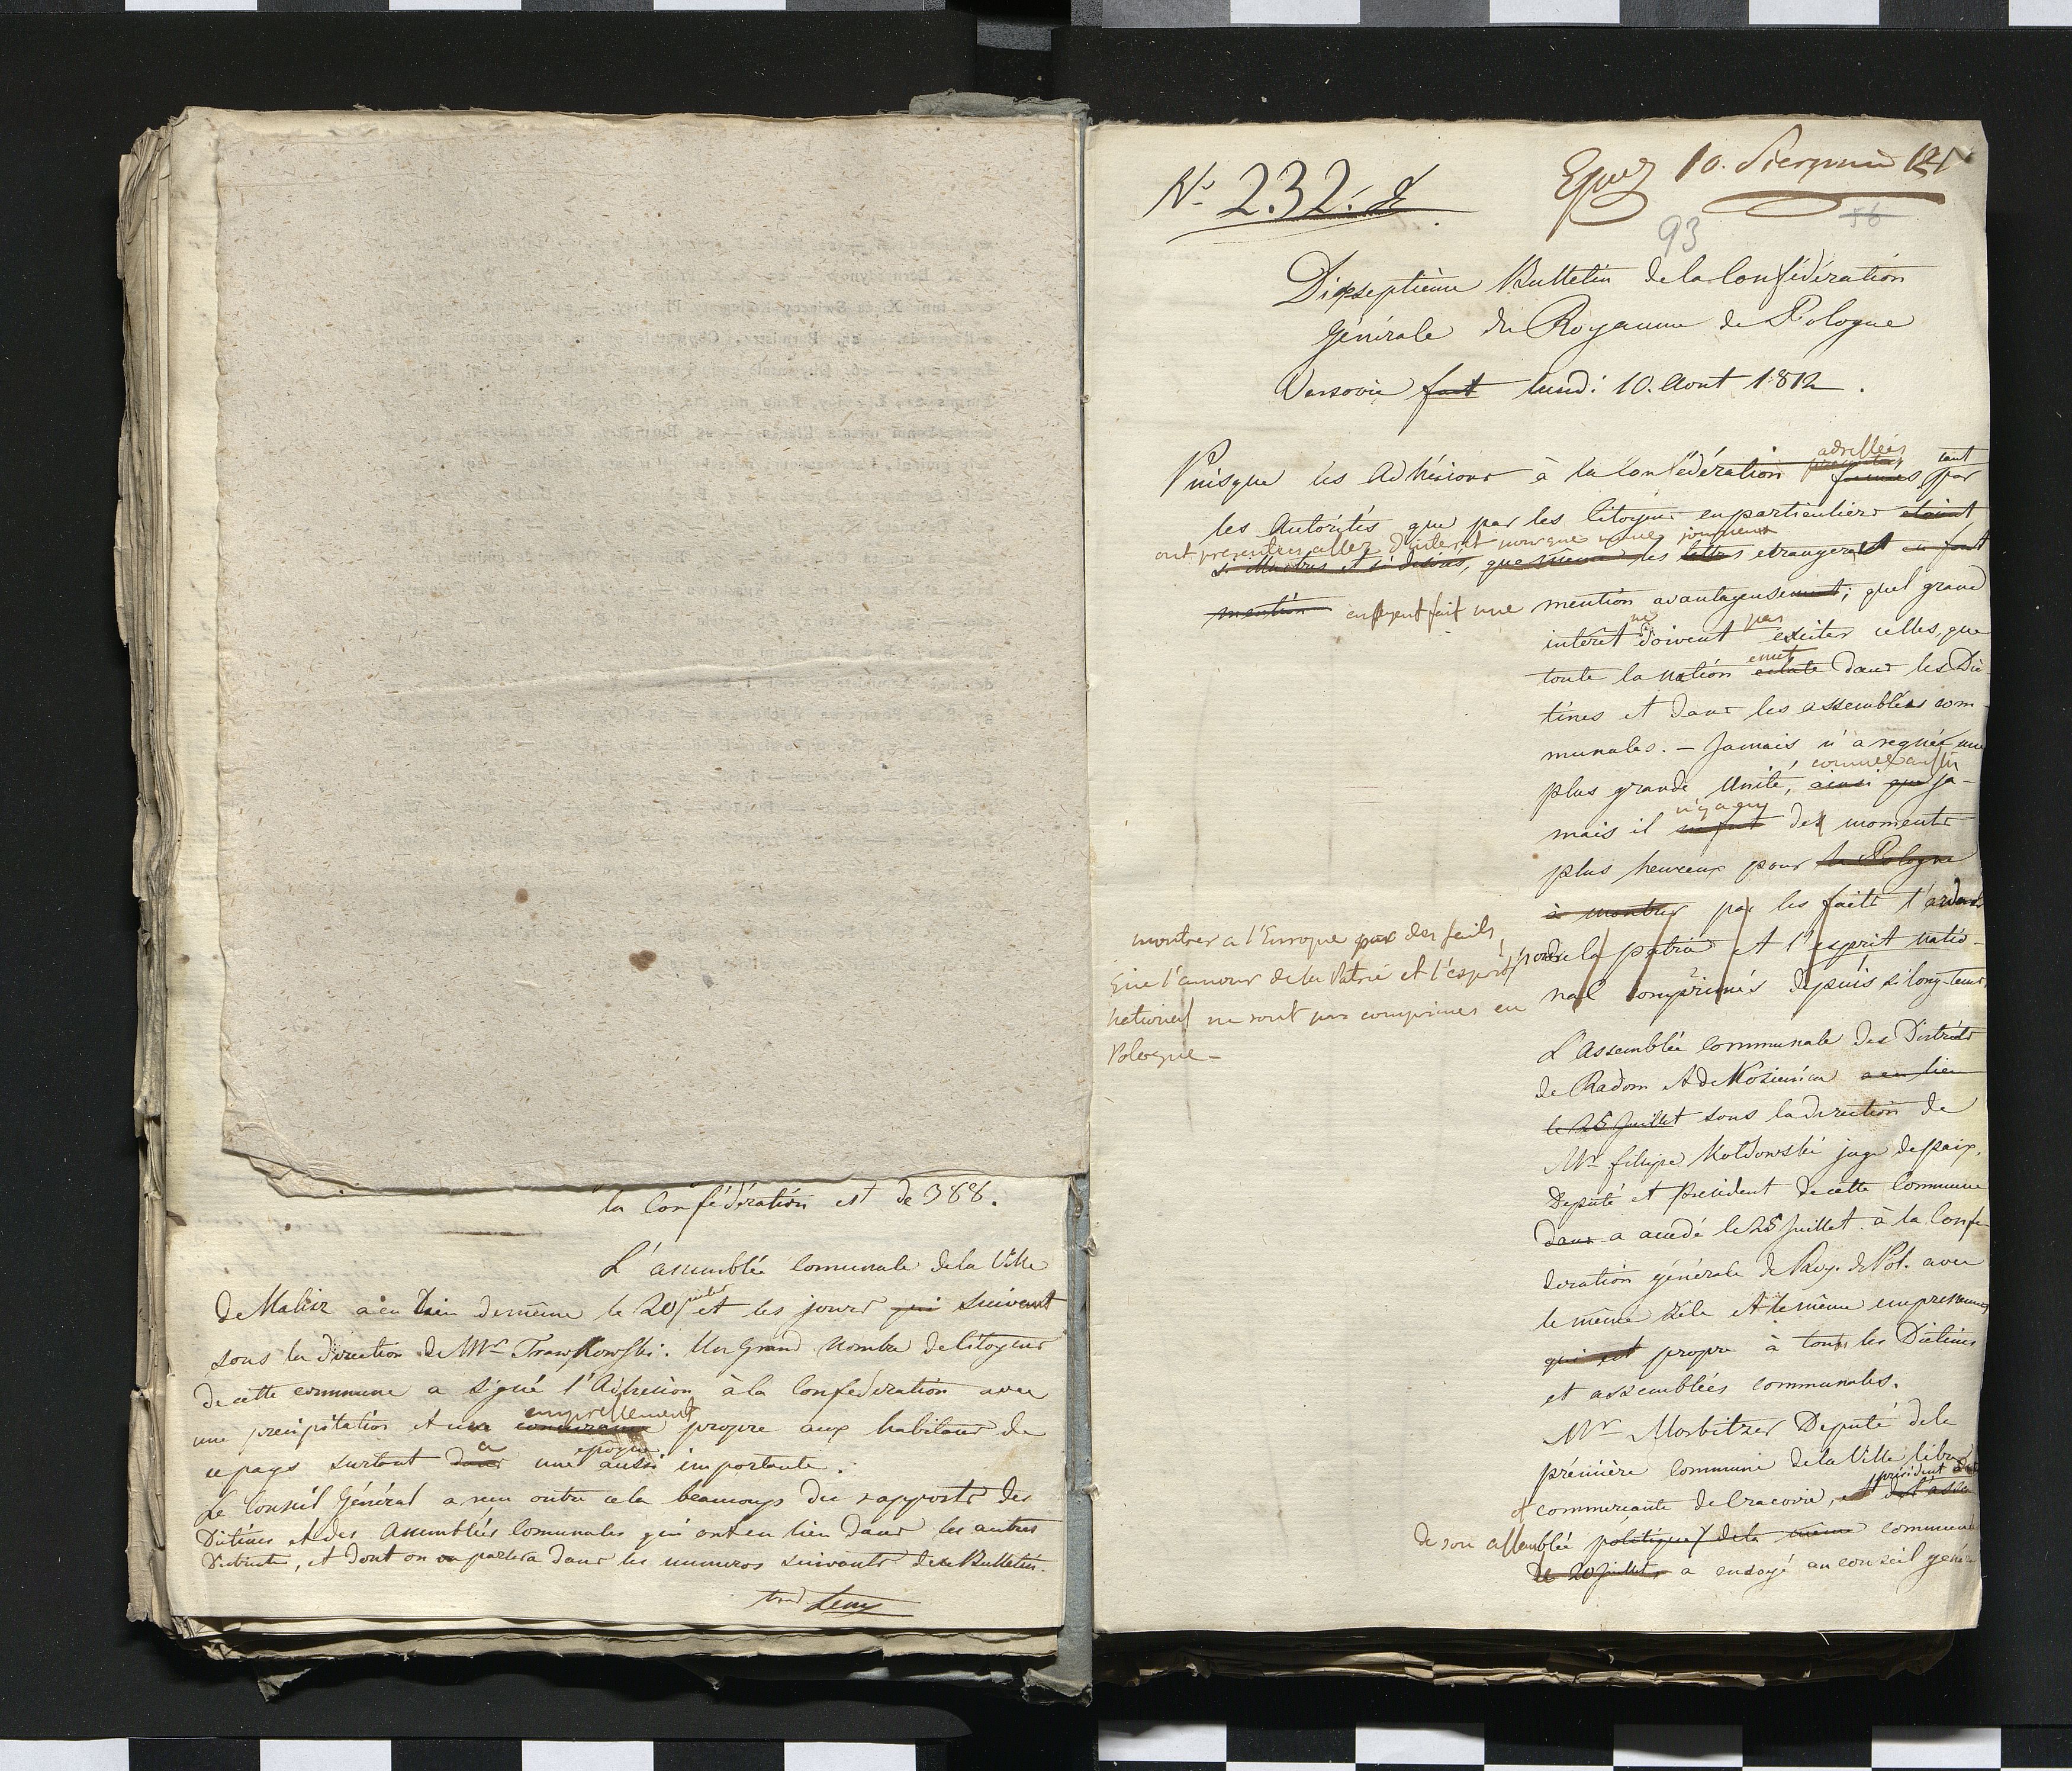 la Confédération est de 388.
L'assemblée Communale de la Ville
de Kalisz a eu lieu de même le 20 juillet et les jours qui suivent
sous la direction de Mr Trawkowski. Un Grand Nombre de Citoyens
de cette commune a signé l'Adhesion à la Confédération avec
une précipitation et un empressement propre aux habitans de
ce pays surtout dans à une epoque aussi importante.
Le Conseil Général a reçu outre cela beaucoup des rapports des
Diétines et des Assemblées Communales qui ont eu lieu dans les autres
Districts, et dont on en parlera dans les numeros suivants de ce Bulletin.
N° 232.
10. Sierpnia 12
93
56
Dixseptième Bulletin de la Confédération
Générale du Royaume de Pologne
Varsovie fait lundi 10. Aout 1812.
Puisque les Adhésions à la Confédération adressées tant par
les Autorités que par les Citoyens en particulier etaient
ont presentés assez d'interet pour que même journaux
si illustres et si desirés, que même les lettres etrangeres et en font
mention en ayent fait une mention avantageusement; quel grand
intérêt ne doivent pas exciter celles, que
toute la nation emet eclate dans les Dié-
tines et dans les assemblées com-
munales. – Jamais n'a regnée une
plus grande Unité, comme aussi ainsi que ja-
mais il n'y a eu ne fut des moments
plus heureux pour la Pologne
à montrer par les faits l'ardeur
pour de la patrie et l'esprit natio-
nal comprimés depuis si long-tems
montrer a l'Europe par des faits,
que l'amour de la Patrie et l'esprit
national ne sont pas comprimes en
Pologne –
L'Assemblée Communale des Districts
de Radom et de Kozienice a eu lieu
le 25 Juillet sous la direction de
Mr filipe Kotdowski juge de paix,
Deputé et president de cette Commune
dans a accedé le 25 Juillet à la Confe-
deration générale de Roy. de Pol. avec
le même zèle et le même empressement
qui est propre à tous les Diétines
et assemblées communales.
Mr Morbitzer Deputé de la
première commune de la Ville libre
commerçante de Cracovie, et président
de son assemblée politique de la même commune
le 20 Juillet, a envoyé au conseil général